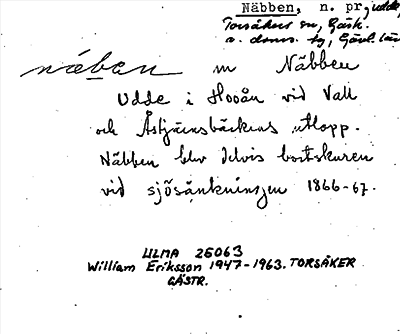 Näbben, n. pr., udde,
Torsåkers sn, Gästr.
o. doms. tg, Gävl. län
näben m Näbben
Udde i Hoån vid Vall
och Åstjärnsbäckens utlopp.
Näbben blev delvis bortskuren
vid sjösänkningen 1866-67.
ULMA 25063
William Eriksson 1947-1963. TORSÅKER
GÄSTR.